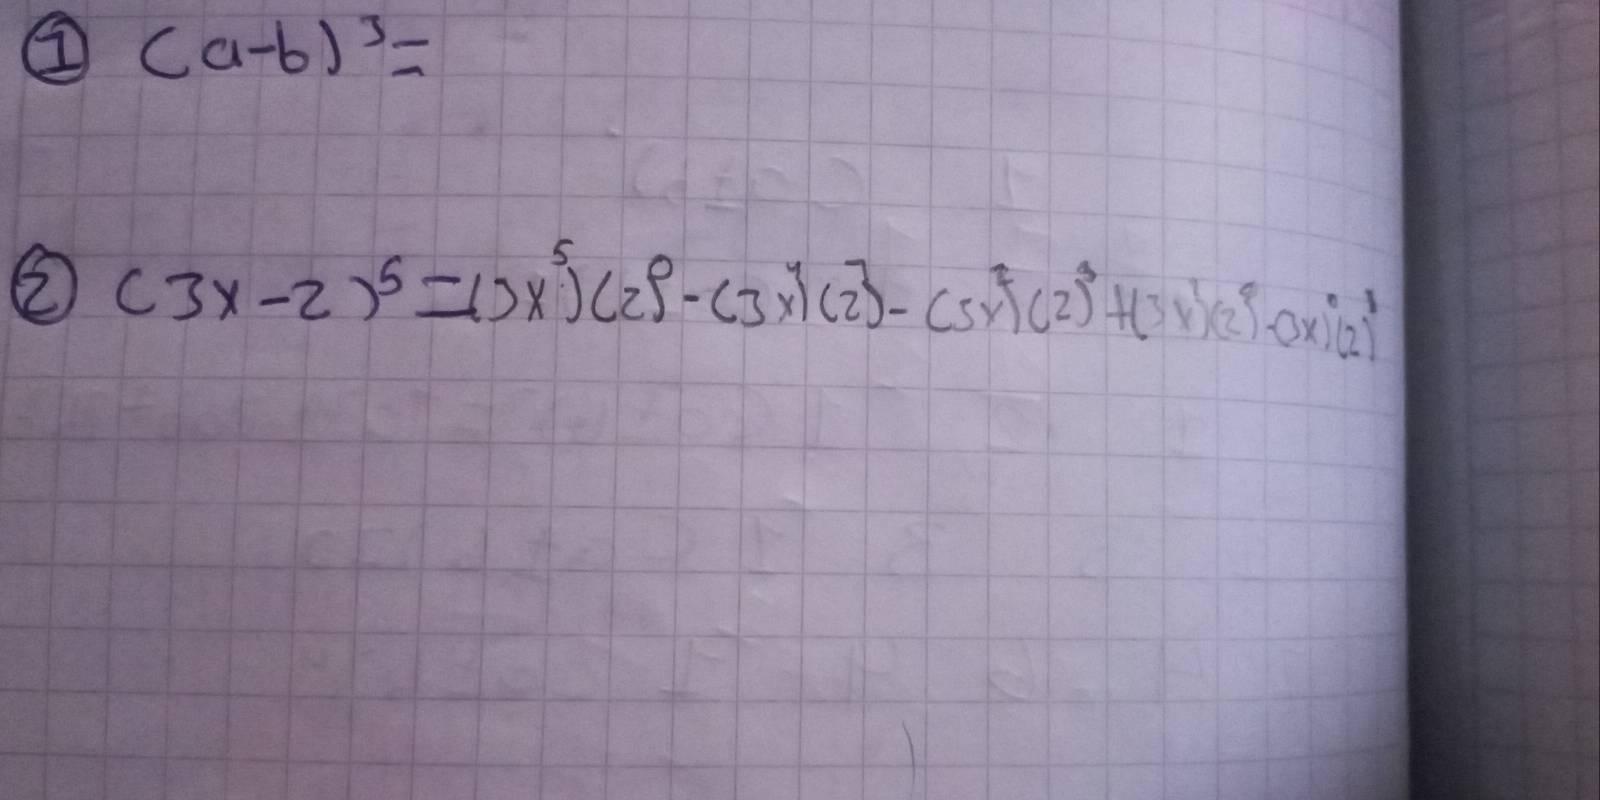 ① (a-b)³=
② (3x-2)⁵=(3x⁵)(2)⁰-(3x)⁴(2)¹-(3x)²(2)³+(3x)¹(2)⁴-(3x)⁰(2)⁵